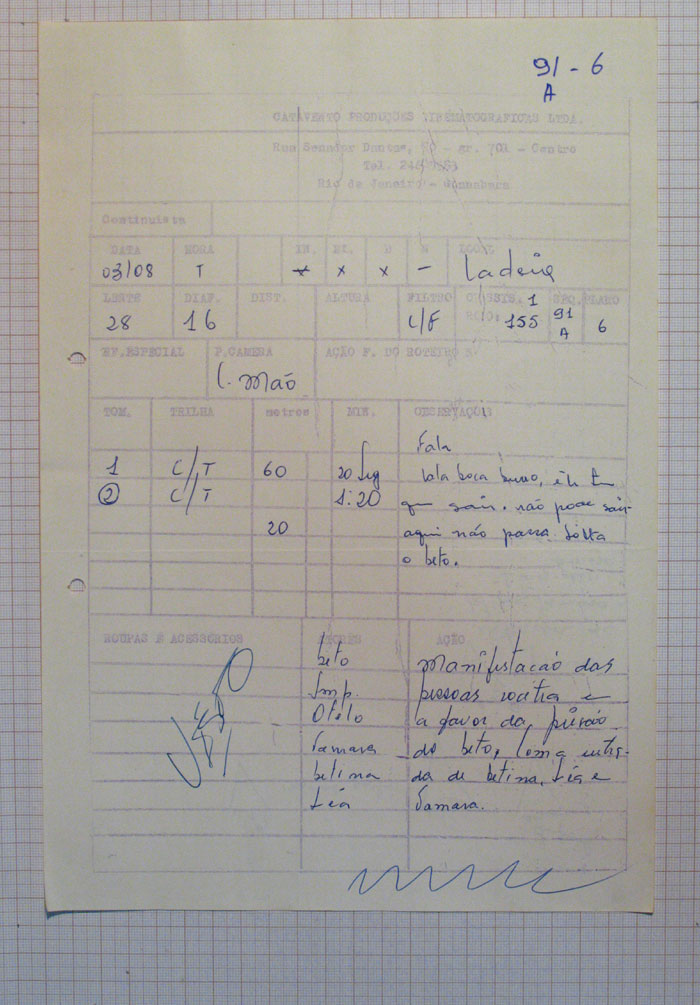 91 - 6
A
CATAVENTO PRODUÇÕES CINEMATOGRAFICAS LTDA.
Rua Senador Dantas, - gr. 701 - Centro
Tel.
Rio de Janeiro - Guanabara
Continuista
DATA HORA IN. EX. D N LOCAL
03/08 T x x x - Ladeira
LENTE DIAF. DIST. ALTURA FILTRO CHASSIS. 1 SEQ. PLANO
28 16 C/F ROLO: 155 91 A 6
EF.ESPECIAL P.CAMERA AÇÃO P. DO ROTEIRO
C. Mão
TOM. TRILHA metros MIN. OBSERVAÇÕES
Fala
1 C/T 60 20 boca
2 C/T 1:20 que sair. não pode sair
20 aqui não passa. Solta
o beto.
ROUPAS E ACESSÓRIOS ATORES AÇÃO
beto Manifestacaõ das
Imp. pessoas contra e
Otelo a favor da prisão
Samara do beto, com a
betina da de betina, Léa e
Léa Samara.